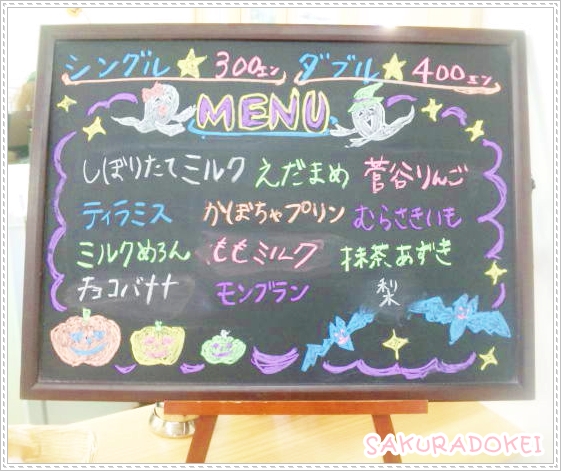 シングル★300エン ダブル★400エン
MENU
しぼりたてミルク えだまめ 菅谷りんご
ティラミス かぼちゃプリン むらさきいも
ミルクめろん ももミルク 抹茶あずき
チョコバナナ モンブラン 梨
SAKURADOKEI